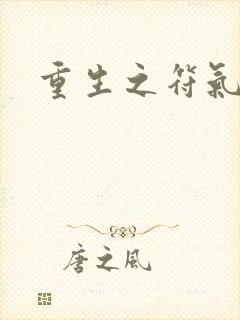 重生之符氣
唐之风